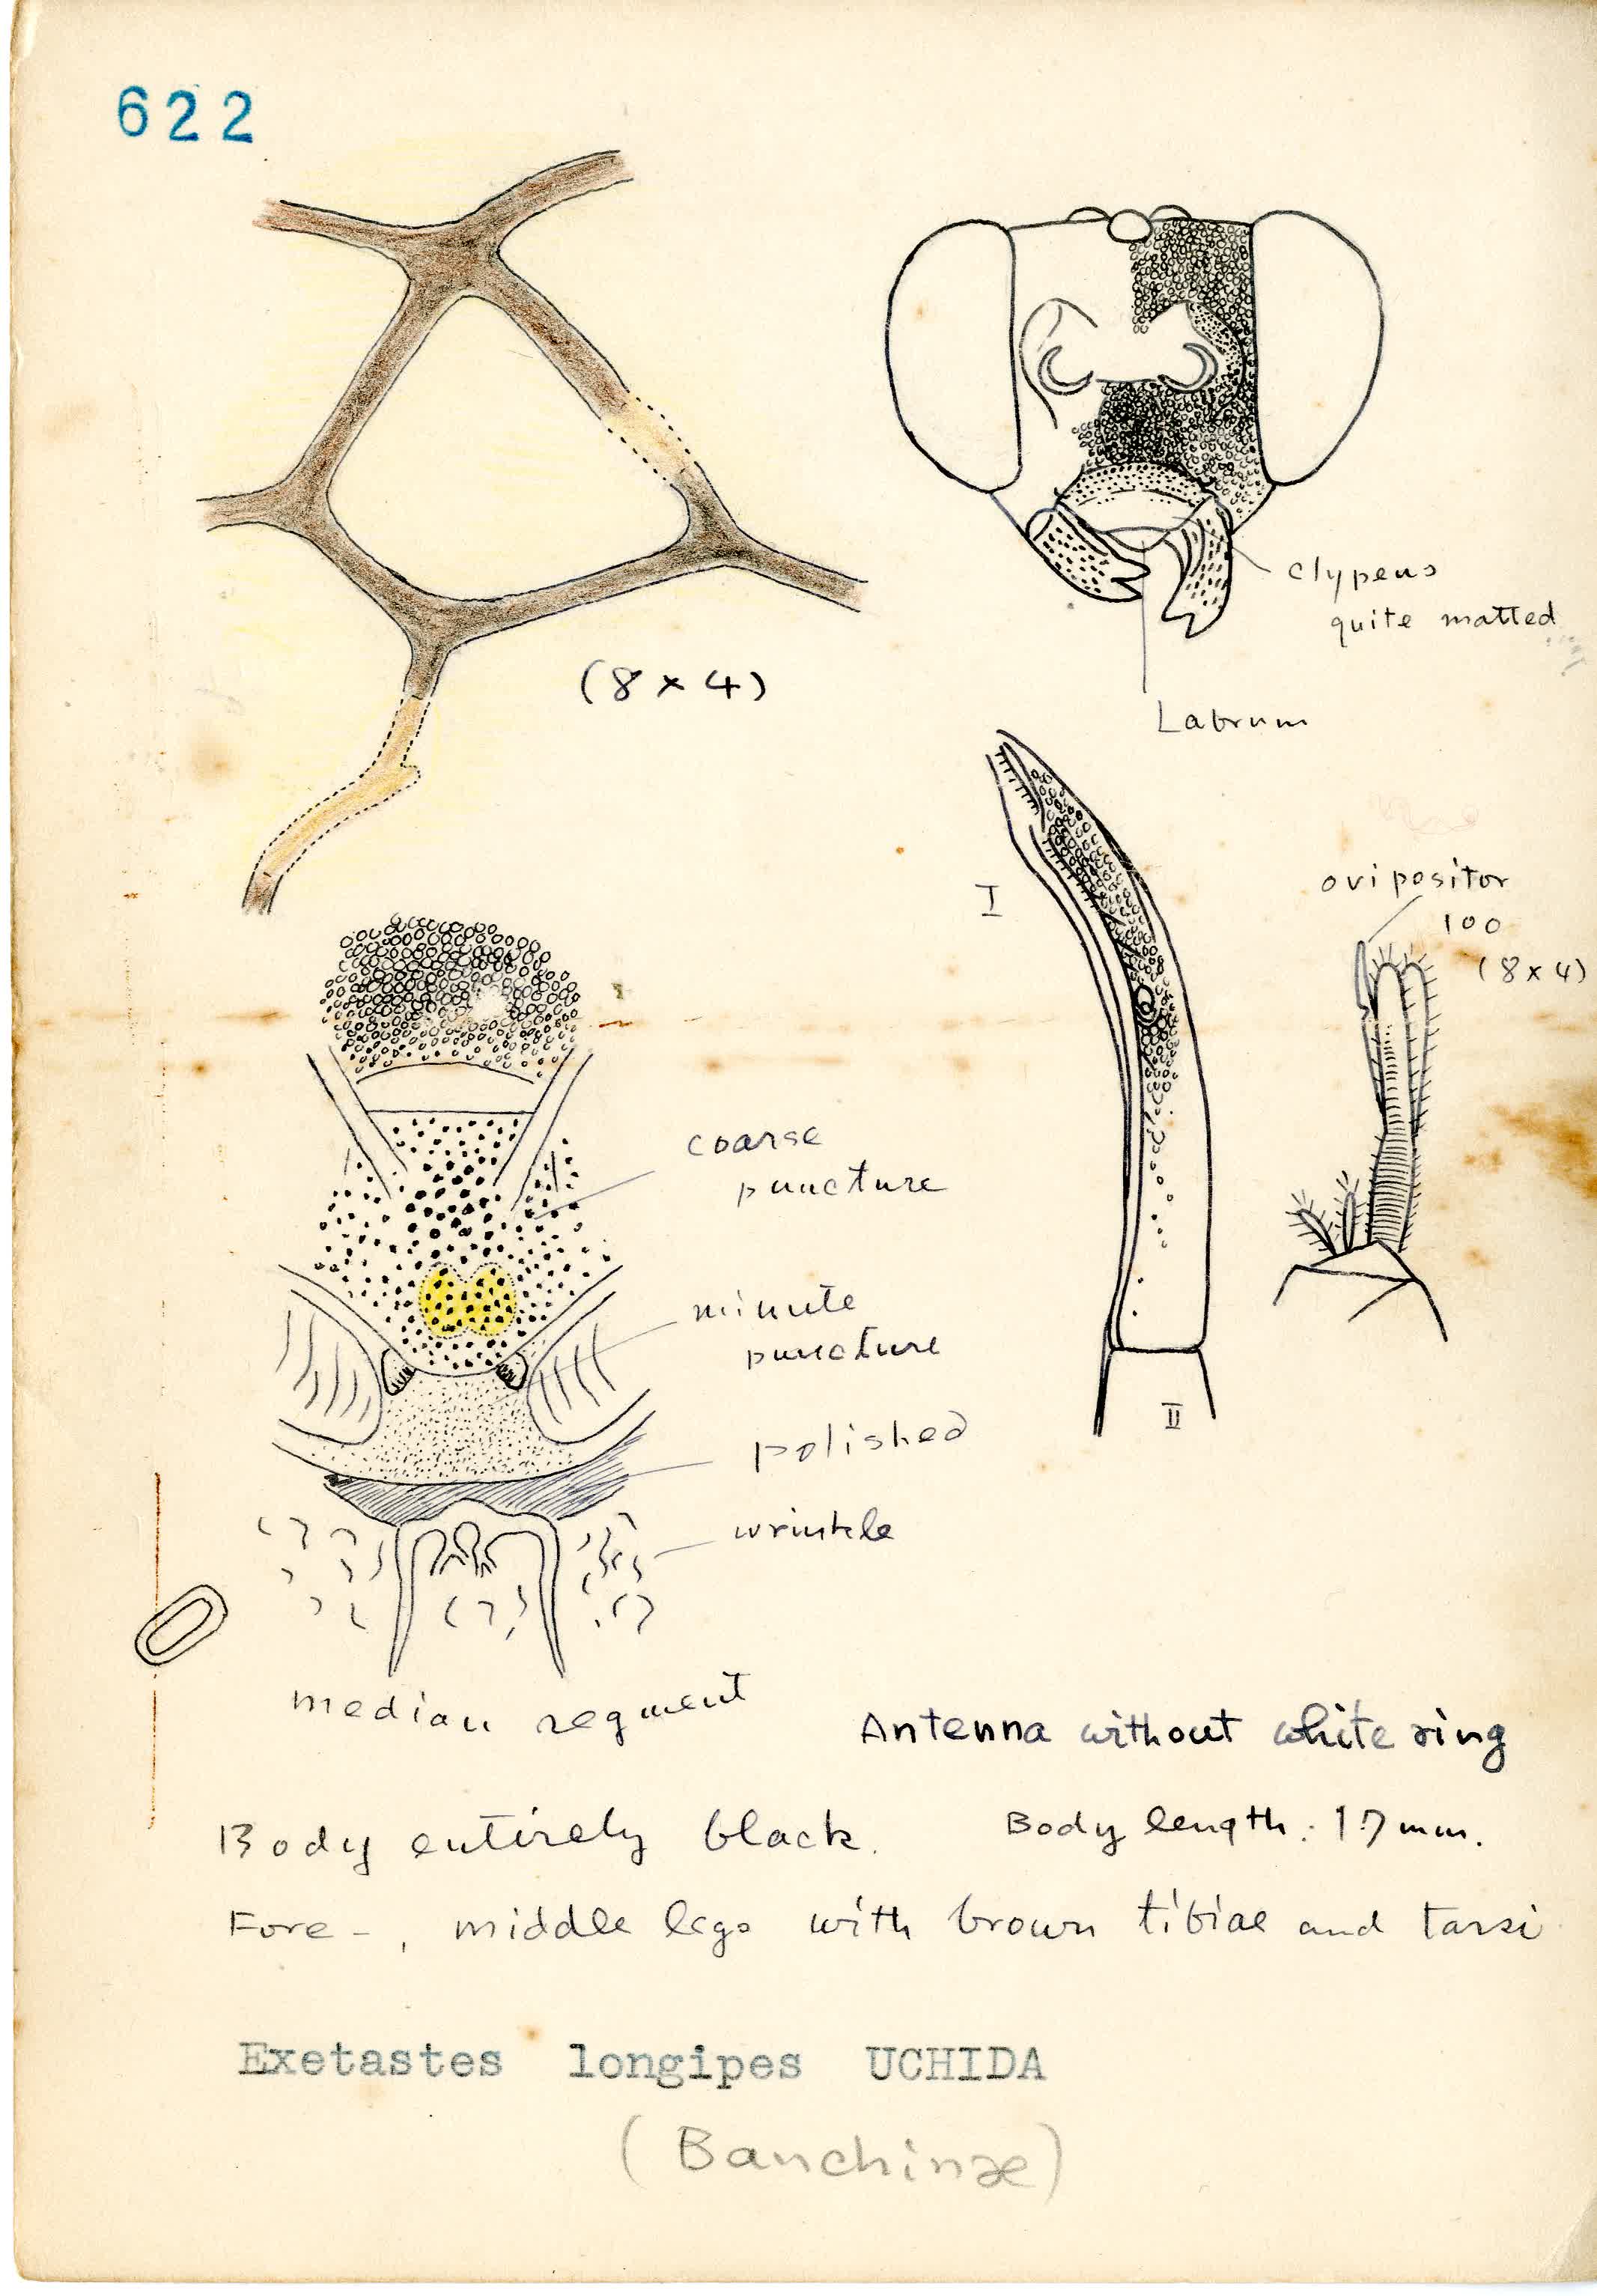 622
(8 x 4)
clypeus
quite matted
Labrum
I
ovipositor
100
(8 x 4)
coarse
puncture
minute
puncture
II
polished
wrinkle
median segment
Antenna without white ring
Body entirely black.
Body length: 17mm.
Fore-, middle legs with brown tibiae and tarsi
Exetastes longipes UCHIDA
(Banchinæ)